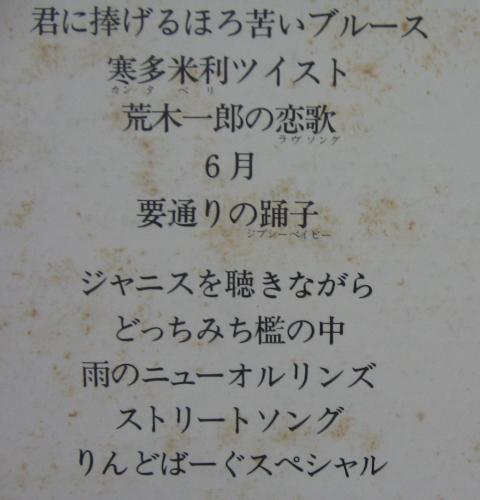 君に捧げるほろ苦いブルース
寒多米利ツイスト
カンタベリ
荒木一郎の恋歌
ラヴソング
6月
要通りの踊子
ジプシーベイビー
ジャニスを聴きながら
どっちみち檻の中
雨のニューオルリンズ
ストリートソング
りんどばーぐスペシャル